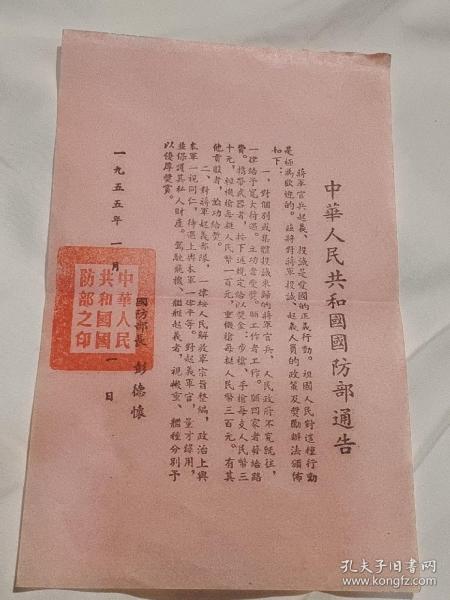 中華人民共和國國防部通告
蔣軍官兵起義、投誠是愛國的正義行動。祖國人民對這種行動
是極為歡迎的。茲將對蔣軍投誠、起義人員的政策及獎勵辦法頒佈
如下：
一、對個別或集體投誠來歸的蔣軍官兵，人民政府不究既往，
一律給予寬大待遇。立功者受獎。願工作者工作。願回家者發給路
費。携帶武器者，按下述規定給以獎金：步槍、手槍每支人民幣三
十元，輕機槍每挺人民幣一百元，重機槍每挺人民幣三百元。有其
他貢獻者，論功給獎。
二、對蔣軍起義部隊，一律按人民解放軍宗旨整編，政治上與
本軍一視同仁，待遇上與本軍一律平等。對起義軍官，量才錄用，
並保護其私人財產。駕駛飛機、艦艇起義者，視機種、艦種分別予
以優厚獎賞。
國防部長 彭德懷
一九五五年一月 一日
中華人民
共和國國
防部之印
孔夫子旧书网
www.kongfz.com